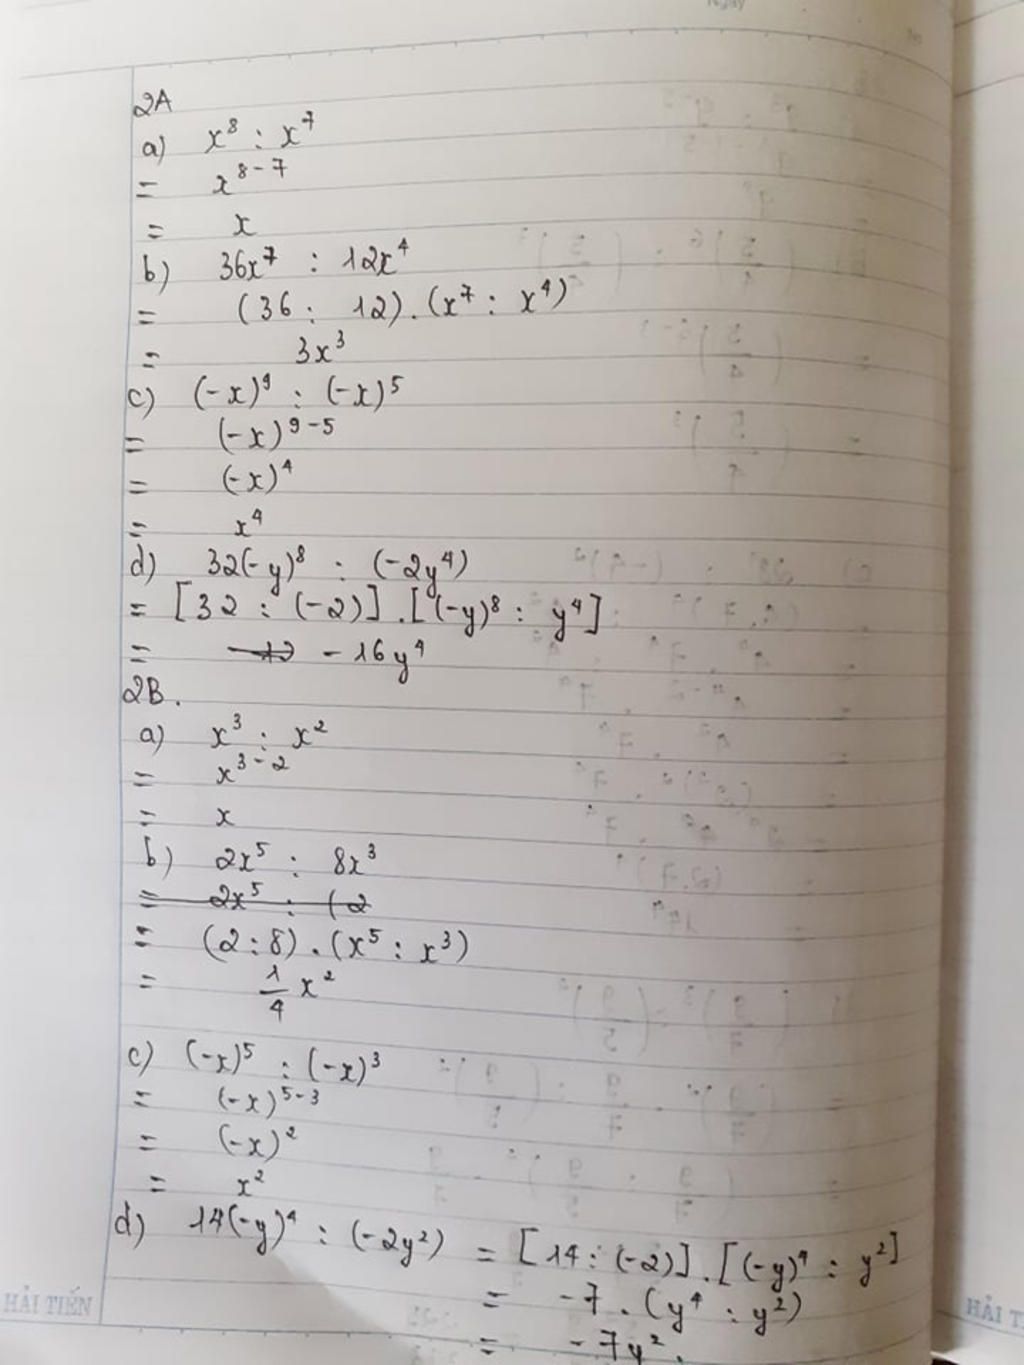 Ngày
2A
a) x⁸ : x⁷
= x⁸⁻⁷
= x
b) 36x⁷ : 12x⁴
= (36 : 12).(x⁷ : x⁴)
= 3x³
c) (-x)⁹ : (-x)⁵
= (-x)⁹⁻⁵
= (-x)⁴
= x⁴
d) 32(-y)⁸ : (-2y⁴)
= [32 : (-2)].[(-y)⁸ : y⁴]
= -16y⁴
2B.
a) x³ : x²
= x³⁻²
= x
b) 2x⁵ : 8x³
= 2x⁵ : (2
= (2:8).(x⁵ : x³)
= 1/4 x²
c) (-x)⁵ : (-x)³
= (-x)⁵⁻³
= (-x)²
= x²
d) 14(-y)⁴ : (-2y²) = [14 : (-2)].[(-y)⁴ : y²]
= -7.(y⁴ : y²)
= -7y².
HẢI TIẾN
HẢI T